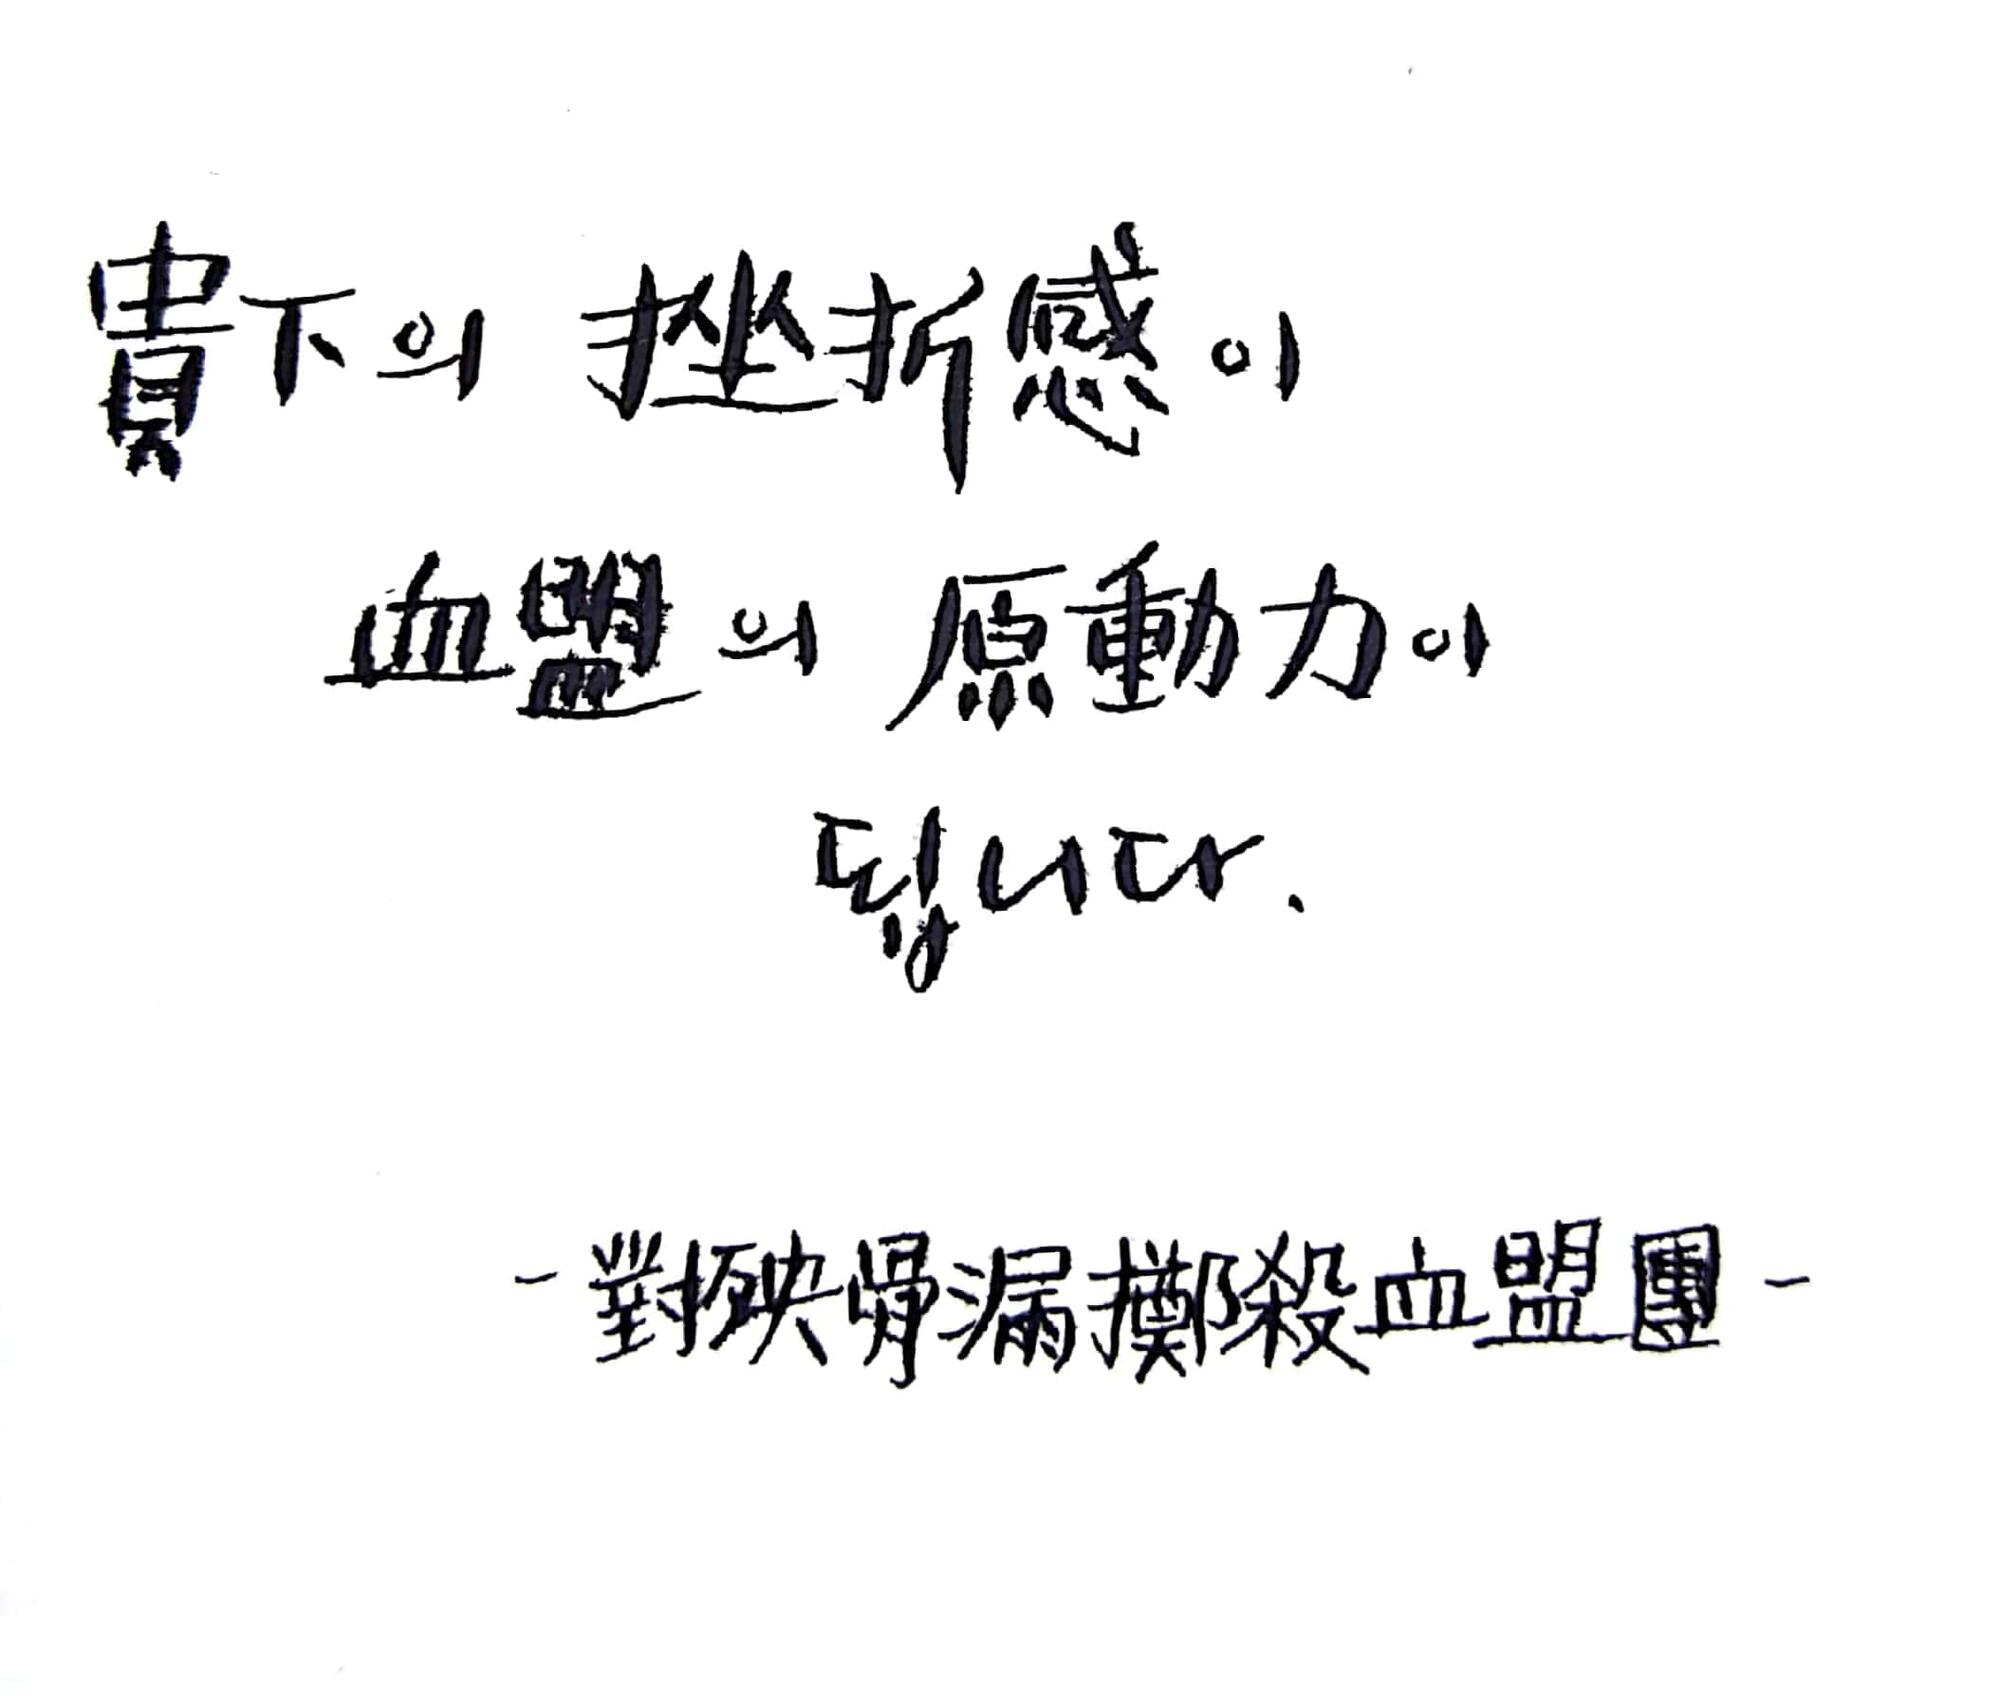 貴下의 挫折感이
血盟의 原動力이
됩니다.
-對殃骨漏擲殺血盟團-